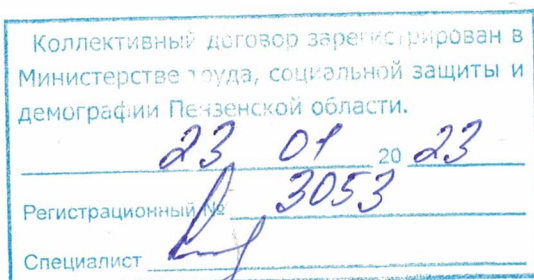 Коллективный договор зарегистрирован в
Министерстве труда, социальной защиты и
демографии Пензенской области.
23 01 20 23
Регистрационный № 3053
Специалист